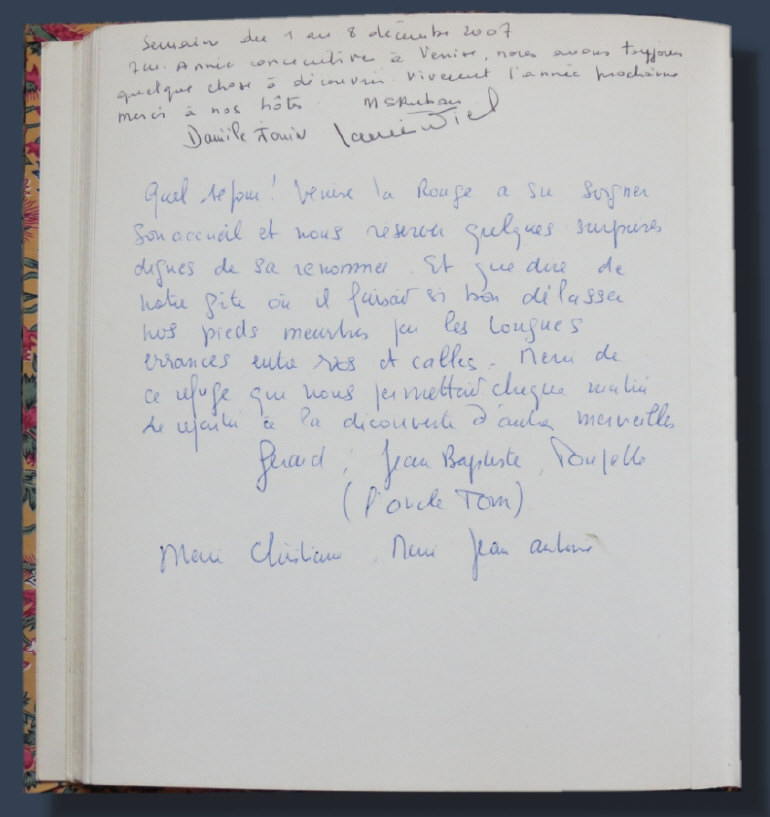 Semaine du 1 au 8 décembre 2007
7em Année consecutive à Venise, nous avons toujours
quelque chose à découvrir. vivement l'année prochaine
merci à nos hôtes
Danièle
Quel séjour! Venise la Rouge a su soigner
son accueil et nous réserver quelques surprises
dignes de sa renommée. Et que dire de
notre gîte où il faisait si bon délasser
nos pieds meurtris par les longues
errances entre rios et calles. Merci de
ce refuge qui nous permettait chaque matin
de repartir à la découverte d'autres merveilles
Gérard, Jean Baptiste,
(l'oncle Tom)
Merci Christiane Merci Jean antoine